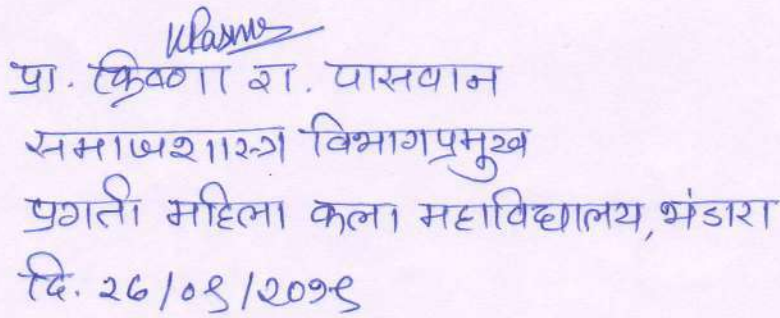 प्रा. क्रिष्णा रा. पासवान
समाजशास्त्र विभागप्रमुख
प्रगती महिला कला महाविद्यालय, भंडारा
दि. २६/०९/२०१९